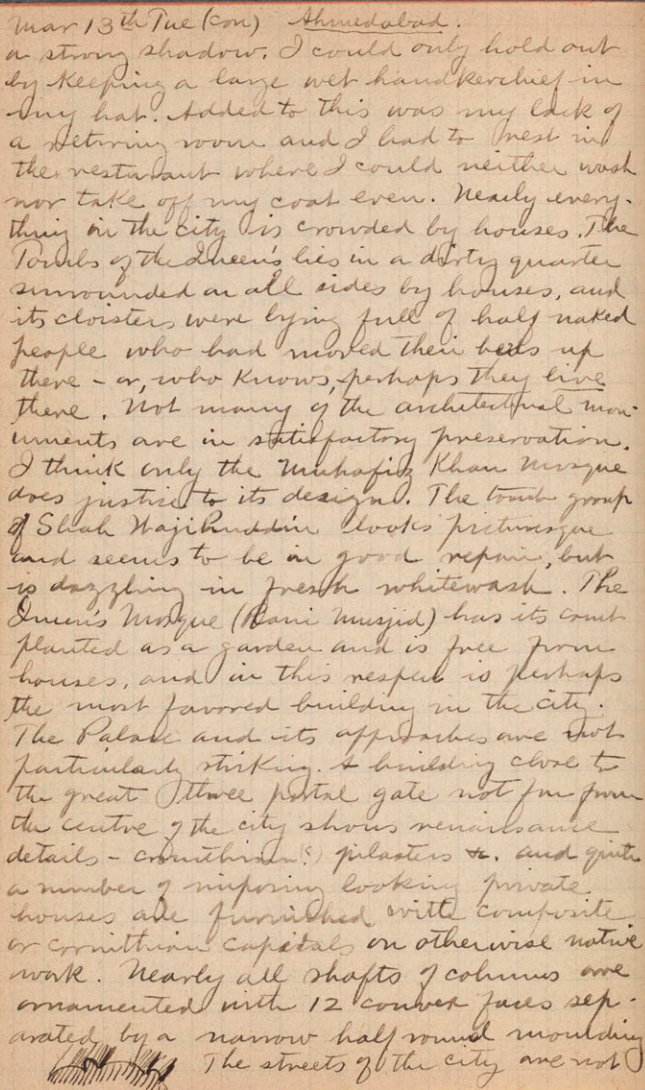 Mar 13th Tue (con) Ahmedabad.
a strong shadow. I could only hold out
by keeping a large wet handkerchief in
my hat. Added to this was my lack of
a retiring room and I had to rest in
the restaurant where I could neither wash
nor take off my coat even. Nearly every-
thing in the city is crowded by houses. The
Tombs of the Queen's lies in a dirty quarter
surrounded on all sides by houses, and
its cloisters were lying full of half naked
people who had moved their beds up
there – or, who knows, perhaps they live
there. Not many of the architectural mon-
uments are in satisfactory preservation.
I think only the Muhafiz Khan Mosque
does justice to its design. The tomb group
of Shah Wajihuddin looks picturesque
and seems to be in good repair, but
is dazzling in fresh whitewash. The
Queen's Mosque (Rani Musjid) has its court
planted as a garden and is free from
houses, and in this respect is perhaps
the most favored building in the city.
The Palace and its approaches are not
particularly striking. A building close to
the great three portal gate not far from
the centre of the city shows renaissance
details – corinthian(?) pilasters &c. and quite
a number of imposing looking private
houses are furnished with composite
or corinthian capitals on otherwise native
work. Nearly all shafts of columns are
ornamented with 12 convex faces sep-
arated by a narrow half round moulding
The streets of the city are not